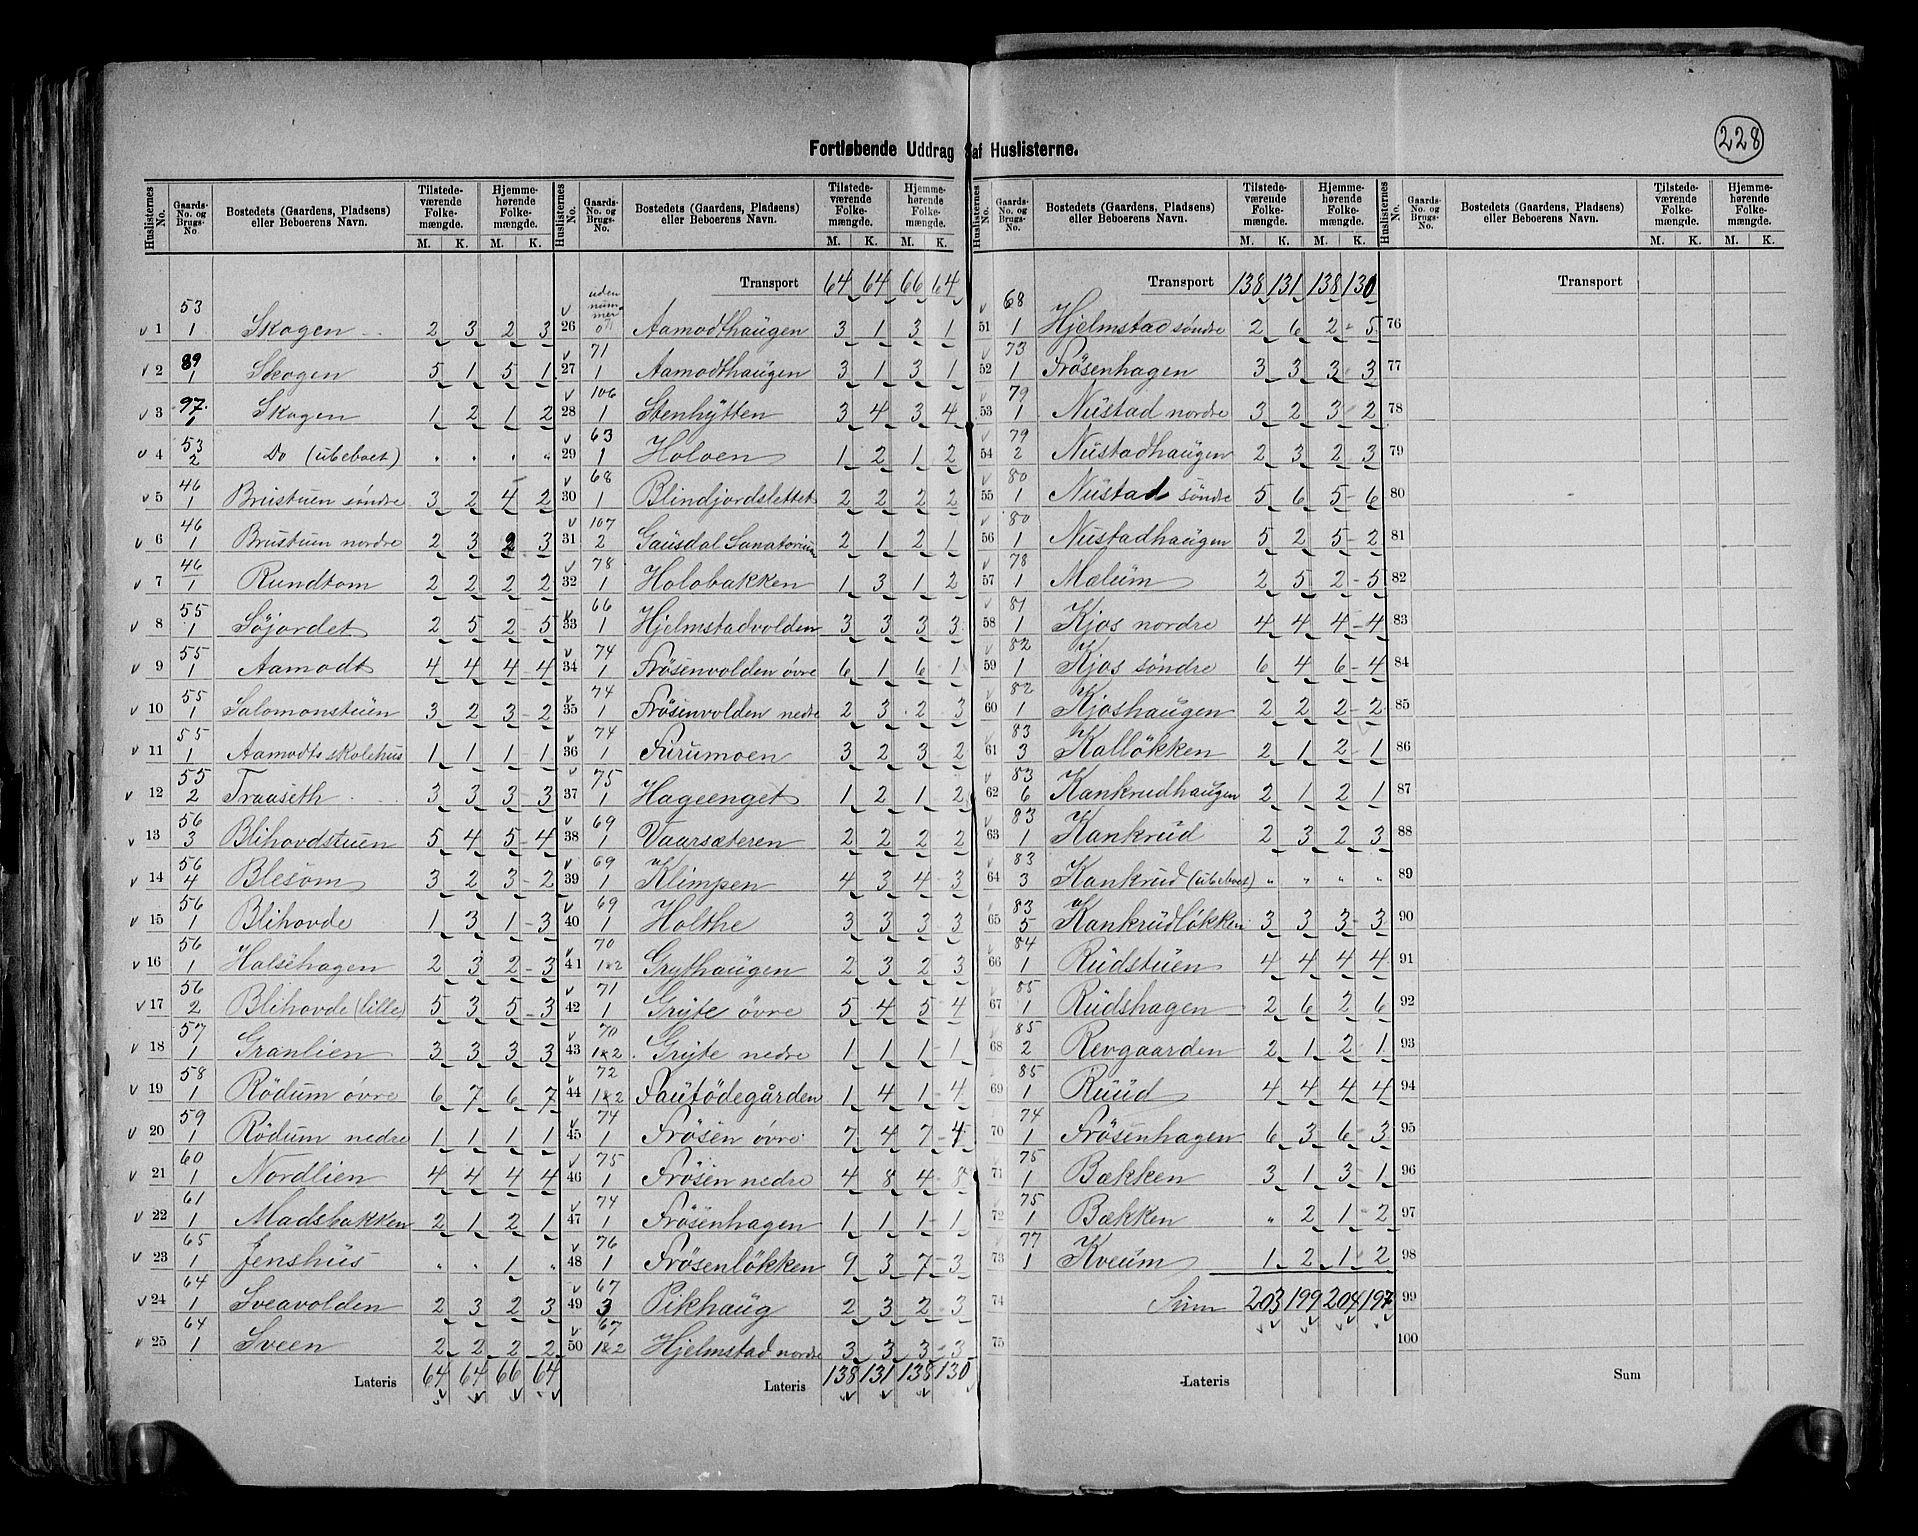 228
Fortløbende Uddrag af Huslisterne.
Huslisternes No. | Gaards-No. og Brugs-No | Bostedets (Gaardens, Pladsens) eller Beboerens Navn. | Tilstedeværende Folkemængde. M. K. | Hjemmehørende Folkemængde. M. K.
1 | 53/1 | Skogen | 2 | 3 | 2 | 3
2 | 89/1 | Skogen | 5 | 1 | 5 | 1
3 | 97/1 | Skogen | 1 | 2 | 1 | 2
4 | 53/2 | Do (ubeboet) | . | . | . | "
5 | 46/1 | Brustuen søndre | 3 | 2 | 4 | 2
6 | 46/1 | Brustuen nordre | 2 | 3 | 2 | 3
7 | 46/1 | Rundtom | 2 | 2 | 2 | 2
8 | 55/1 | Søjordet | 2 | 5 | 2 | 5
9 | 55/1 | Aamodt | 4 | 4 | 4 | 4
10 | 55/1 | Salomonstuen | 3 | 2 | 3 | 2
11 | 55/1 | Aamodts skolehus | 1 | 1 | 1 | 1
12 | 55/2 | Traaseth | 3 | 3 | 3 | 3
13 | 56/3 | Blihovdstuen | 5 | 4 | 5 | 4
14 | 56/4 | Blesom | 3 | 2 | 3 | 2
15 | 56/1 | Blihovde | 1 | 3 | 1 | 3
16 | 56/1 | Halsehagen | 2 | 3 | 2 | 3
17 | 56/2 | Blihovde (lille) | 5 | 3 | 5 | 3
18 | 57/1 | Granlien | 3 | 3 | 3 | 3
19 | 58/1 | Rödum övre | 6 | 7 | 6 | 7
20 | 59/1 | Rödum nedre | 1 | 1 | 1 | 1
21 | 60/1 | Nordlien | 4 | 4 | 4 | 4
22 | 61/1 | Madsbakken | 2 | 1 | 2 | 1
23 | 65/1 | Jenshus | " | " | 1 | "
24 | 64/1 | Sveavolden | 2 | 3 | 2 | 3
25 | 64/1 | Sveen | 2 | 2 | 2 | 2
Lateris | 64 | 64 | 66 | 64
Huslisternes No. | Gaards-No. og Brugs-No. | Bostedets (Gaardens, Pladsens) eller Beboerens Navn. | Tilstedeværende Folkemængde. M. K. | Hjemmehørende Folkemængde. M. K.
Transport | 64 | 64 | 66 | 64
26 | uden nummer | Aamodthaugen | 3 | 1 | 3 | 1
27 | 71/1 | Aamodthaugen | 3 | 1 | 3 | 1
28 | 106/1 | Stenhytten | 3 | 4 | 3 | 4
29 | 63/1 | Holoen | 1 | 2 | 1 | 2
30 | 68/1 | Blindjordslettet | 2 | 2 | 2 | 2
31 | 107/2 | Gausdal Sanatorium | 2 | 1 | 2 | 1
32 | 78/1 | Holobakken | 1 | 3 | 1 | 2
33 | 66/1 | Hjelmstadvolden | 3 | 3 | 3 | 3
34 | 74/1 | Frösenvolden övre | 6 | 1 | 6 | 1
35 | 74/1 | Frösenvolden nedre | 2 | 3 | 2 | 3
36 | 74/1 | Furumoen | 3 | 2 | 3 | 2
37 | 75/1 | Hageenget | 1 | 2 | 1 | 2
38 | 69/1 | Vaarsæteren | 2 | 2 | 2 | 2
39 | 69/1 | Klimpen | 4 | 3 | 4 | 3
40 | 69/1 | Holthe | 3 | 3 | 3 | 3
41 | 70/1&2 | Grythaugen | 2 | 3 | 2 | 3
42 | 71/1 | Gryte övre | 5 | 4 | 5 | 4
43 | 70/1&2 | Gryte nedre | 1 | 1 | 1 | 1
44 | 72/1&2 | Fautödegården | 1 | 4 | 1 | 4
45 | 74/1 | Frösen övre | 7 | 4 | 7 | 4
46 | 75/1 | Frösen nedre | 4 | 8 | 4 | 8
47 | 74/1 | Frösenhagen | 1 | 1 | 1 | 1
48 | 76/1 | Frösenlökken | 9 | 3 | 7 | 3
49 | 67/3 | Pikhaug | 2 | 3 | 2 | 3
50 | 67/1&2 | Hjelmstad nordre | 3 | 3 | 3 | 3
Lateris | 138 | 131 | 138 | 130
Huslisternes No. | Gaards-No. og Brugs-No. | Bostedets (Gaardens, Pladsens) eller Beboerens Navn. | Tilstedeværende Folkemængde. M. K. | Hjemmehørende Folkemængde. M. K.
Transport | 138 | 131 | 138 | 130
51 | 68/1 | Hjelmstad søndre | 2 | 6 | 2 | 5
52 | 73/1 | Frösenhagen | 3 | 3 | 3 | 3
53 | 79/1 | Nustad nordre | 3 | 2 | 3 | 2
54 | 79/2 | Nustadhaugen | 2 | 3 | 2 | 3
55 | 80/1 | Nustad søndre | 5 | 6 | 5 | 6
56 | 80/1 | Nustadhaugen | 5 | 2 | 5 | 2
57 | 78/1 | Mælum | 2 | 5 | 2 | 5
58 | 81/1 | Kjos nordre | 4 | 4 | 4 | 4
59 | 82/1 | Kjos søndre | 6 | 4 | 6 | 4
60 | 82/1 | Kjoshaugen | 2 | 2 | 2 | 2
61 | 83/3 | Kallökken | 2 | 1 | 2 | 1
62 | 83/6 | Kankrudhaugen | 2 | 1 | 2 | 1
63 | 83/1 | Kankrud | 2 | 3 | 2 | 3
64 | 83/3 | Kankrud (ubeboet) | " | " | " | "
65 | 83/5 | Kankrudlökken | 3 | 3 | 3 | 3
66 | 84/1 | Rudstuen | 4 | 4 | 4 | 4
67 | 85/1 | Rudshagen | 2 | 6 | 2 | 6
68 | 85/2 | Revgaarden | 2 | 1 | 2 | 1
69 | 85/1 | Ruud | 4 | 4 | 4 | 4
70 | 74/1 | Frösenhagen | 6 | 3 | 6 | 3
71 | 75/1 | Bækken | 3 | 1 | 3 | 1
72 | 75/1 | Bækken | " | 2 | 1 | 2
73 | 77/1 | Kveum | 1 | 2 | 1 | 2
74 | Sum | 203 | 199 | 204 | 197
75
Lateris
Huslisternes No. | Gaards-No. og Brugs-No. | Bostedets (Gaardens, Pladsens) eller Beboerens Navn. | Tilstedeværende Folkemængde. M. K. | Hjemmehørende Folkemængde. M. K.
Transport
76
77
78
79
80
81
82
83
84
85
86
87
88
89
90
91
92
93
94
95
96
97
98
99
100
Sum